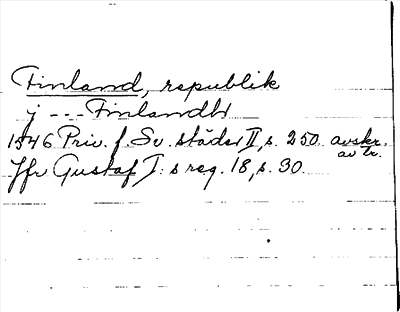 Finland, republik
j --- Finlandh
1546 Priv. f. Sv. städer II, s. 250 avskr.
av tr.
Jfr Gustaf I:s reg. 18, s. 30.